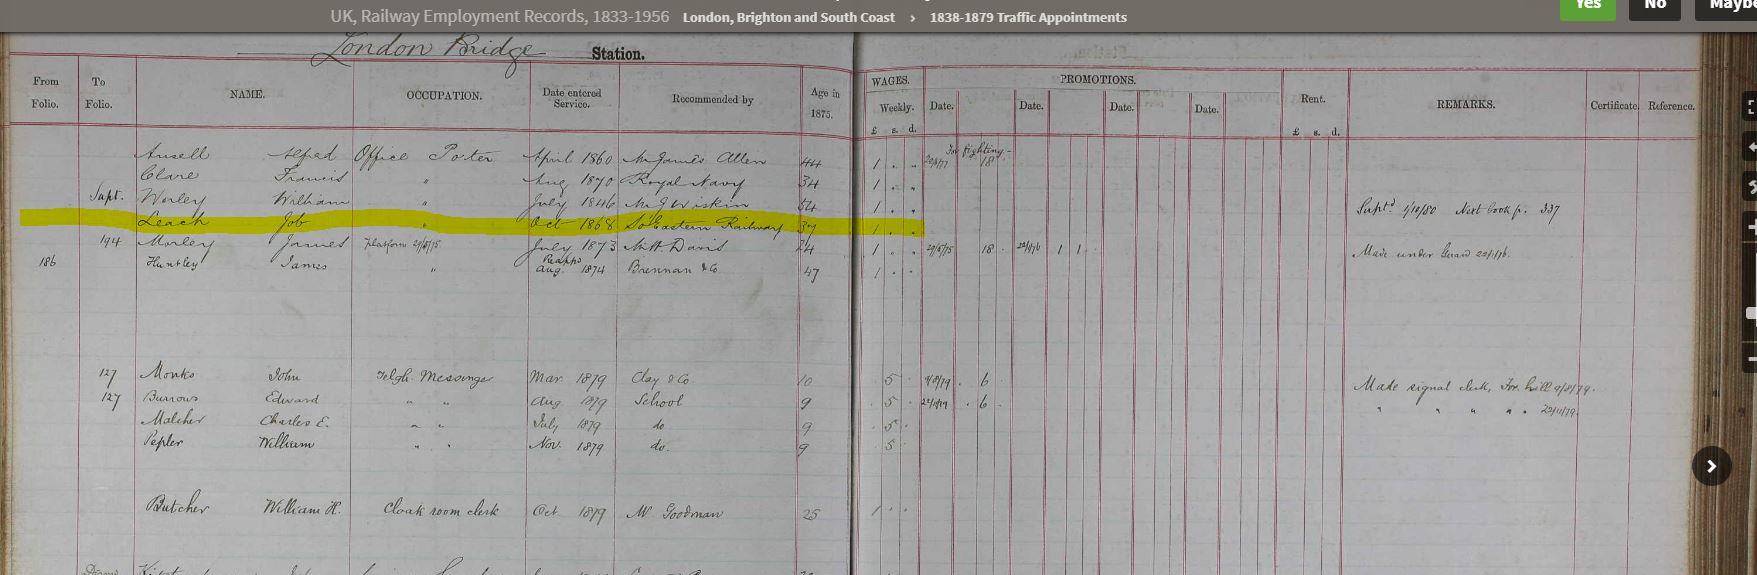 UK, Railway Employment Records, 1833-1956 London, Brighton and South Coast › 1838-1879 Traffic Appointments
Yes No Maybe
London Bridge Station.
From Folio. To Folio. NAME. OCCUPATION. Date entered Service. Recommended by Age in 1875. WAGES. Weekly. £ s. d. PROMOTIONS. Date. Date. Date. Date. Rent. £ s. d. REMARKS. Certificate. Reference.
For fighting.-
Ansell Alfred Office Porter April 1860 Mr James Allen 44 1 . „ 18
Clare Francis „ Aug 1870 Royal Navy 34 1 . „
Supt. Worley William „ July 1846 Mr J Wiskin 54 1 . „ Suptd 1/10/80 Next book p. 337
Leach Job „ Oct 1868 So Eastern Railway 37 1 . „
194 Morley James Platform 29/5/75 July 1873 Davis 24 1 . „ 29/5/75 18 . 22/1/76 1 1 . Made under Guard 22/1/76.
186 Huntley James „ Aug. 1874 Brennan & Co 47 1 . .
127 Monks John Telgh. Messenger Mar. 1879 Clay & Co 10 5 . 9/8/79 . 6 . Made signal clerk, 9/8/79.
127 Burrows Edward „ „ Aug. 1879 School 9 5 . 22/11/79 . 6 . „ „ „ „ . 22/11/79.
Malcher Charles E. „ „ July 1879 do 9 . 5 .
Pepler William „ „ Nov. 1879 do. 9 . 5 .
Butcher William H. Cloak room clerk Oct 1879 Mr Goodman 25 1 . .